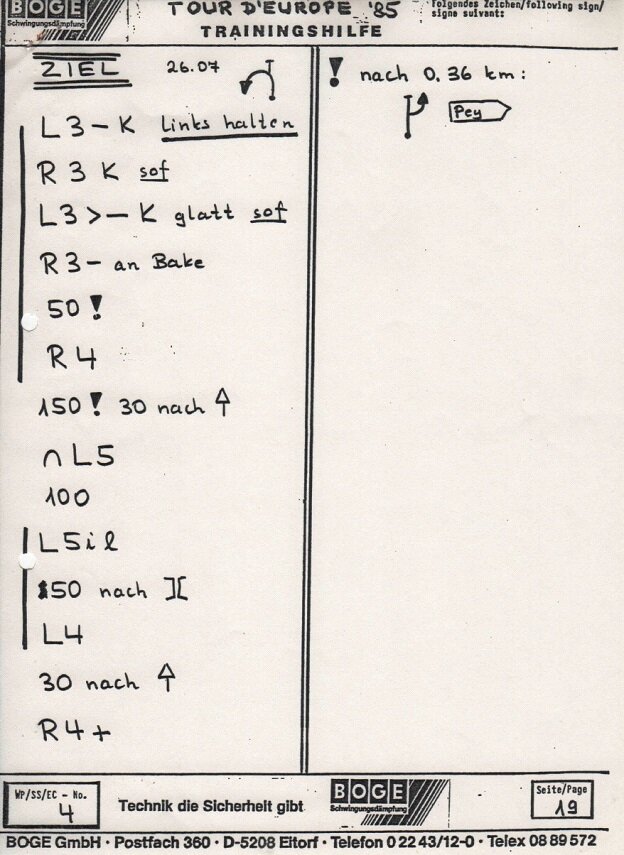 BOGE
Schwingungsdämpfung
TOUR D'EUROPE '85
TRAININGSHILFE
folgendes Zeichen/following sign/
signe suivant:
ZIEL 26.07
L 3 – K Links halten
R 3 K sof
L 3 > – K glatt sof
R 3 – an Bake
50 !
R 4
150 ! 30 nach ↑
∩ L 5
100
L 5 il
50 nach ][
L 4
30 nach ↑
R 4 +
! nach 0.36 km:
Pey
WP/SS/EC - No.
4
Technik die Sicherheit gibt
BOGE
Schwingungsdämpfung
Seite/Page
19
BOGE GmbH · Postfach 360 · D-5208 Eitorf · Telefon 0 22 43/12-0 · Telex 08 89 572